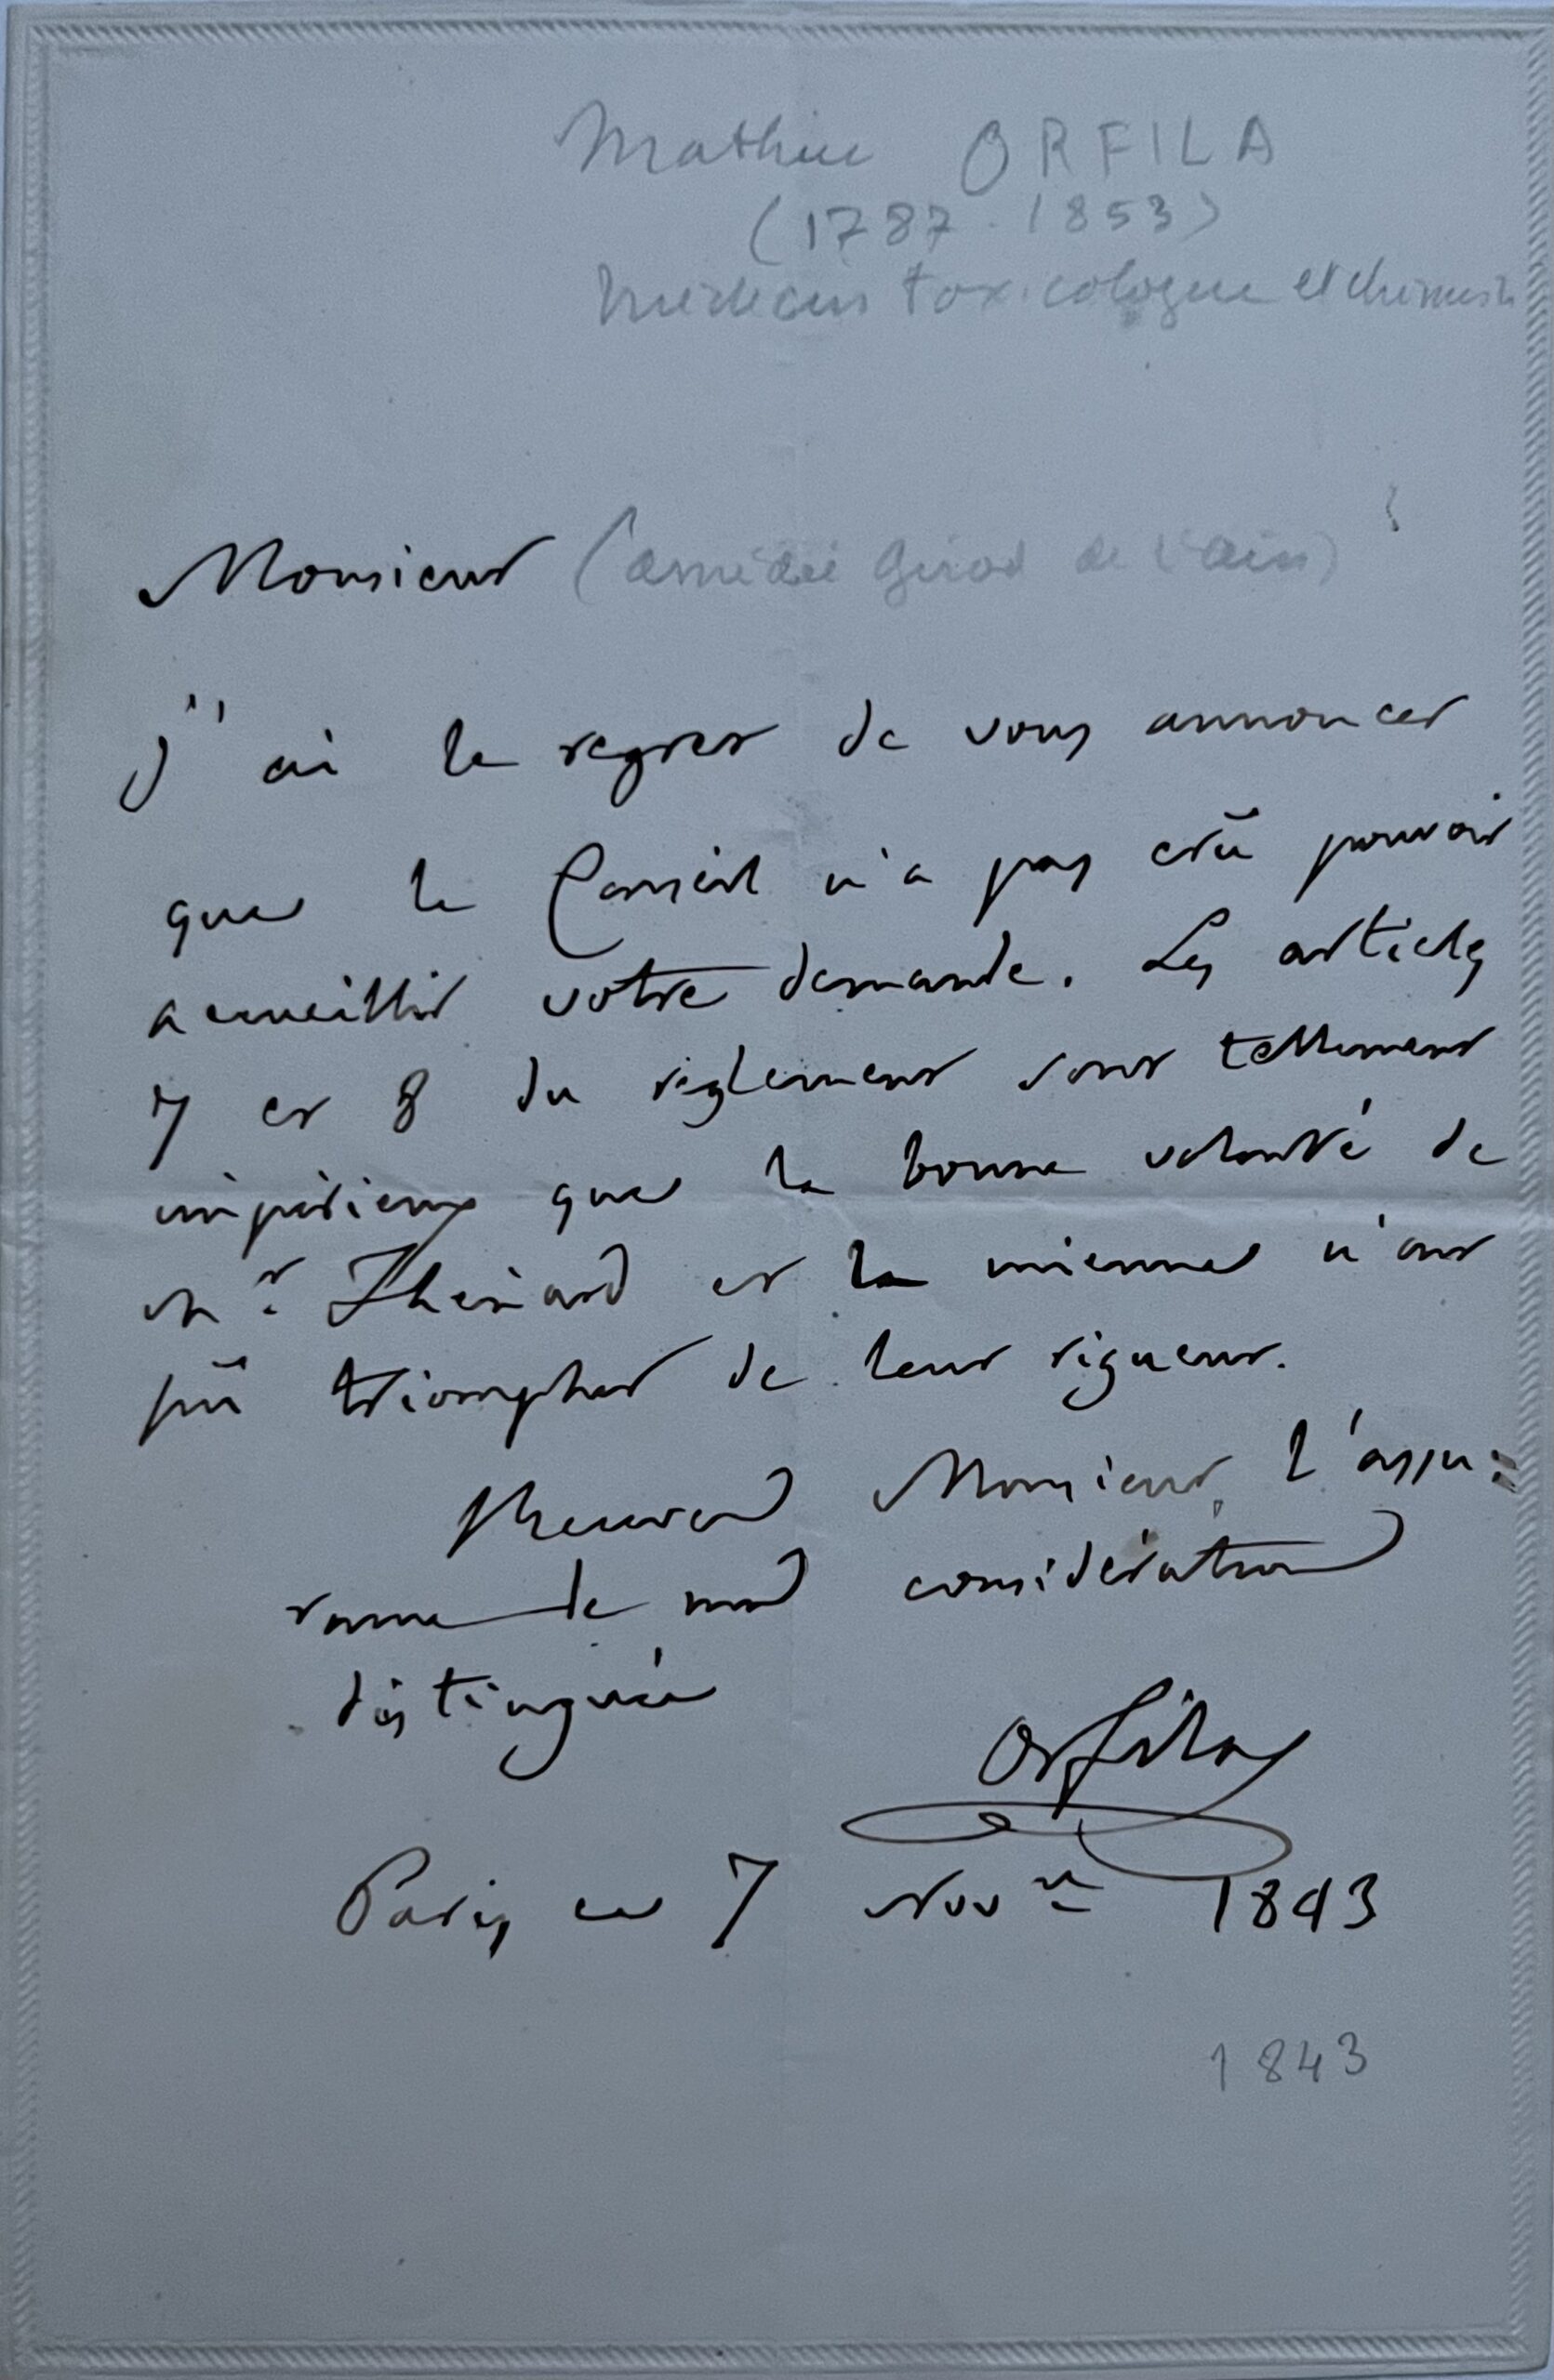 Mathieu ORFILA
(1787-1853)
Médecin toxicologue et chimiste
Monsieur (Amédée Girod de l'Ain)
J'ai le regret de vous annoncer
que le Conseil n'a pas crû pouvoir
accueillir votre demande. Les articles
7 et 8 du règlement sont tellement
impérieux que la bonne volonté de
Mr Thénard et la mienne n'ont
pû triompher de leur rigueur.
Recevez Monsieur, l'assu=
rance de ma considération
distinguée
Orfila
Paris ce 7 Novre 1843
1843